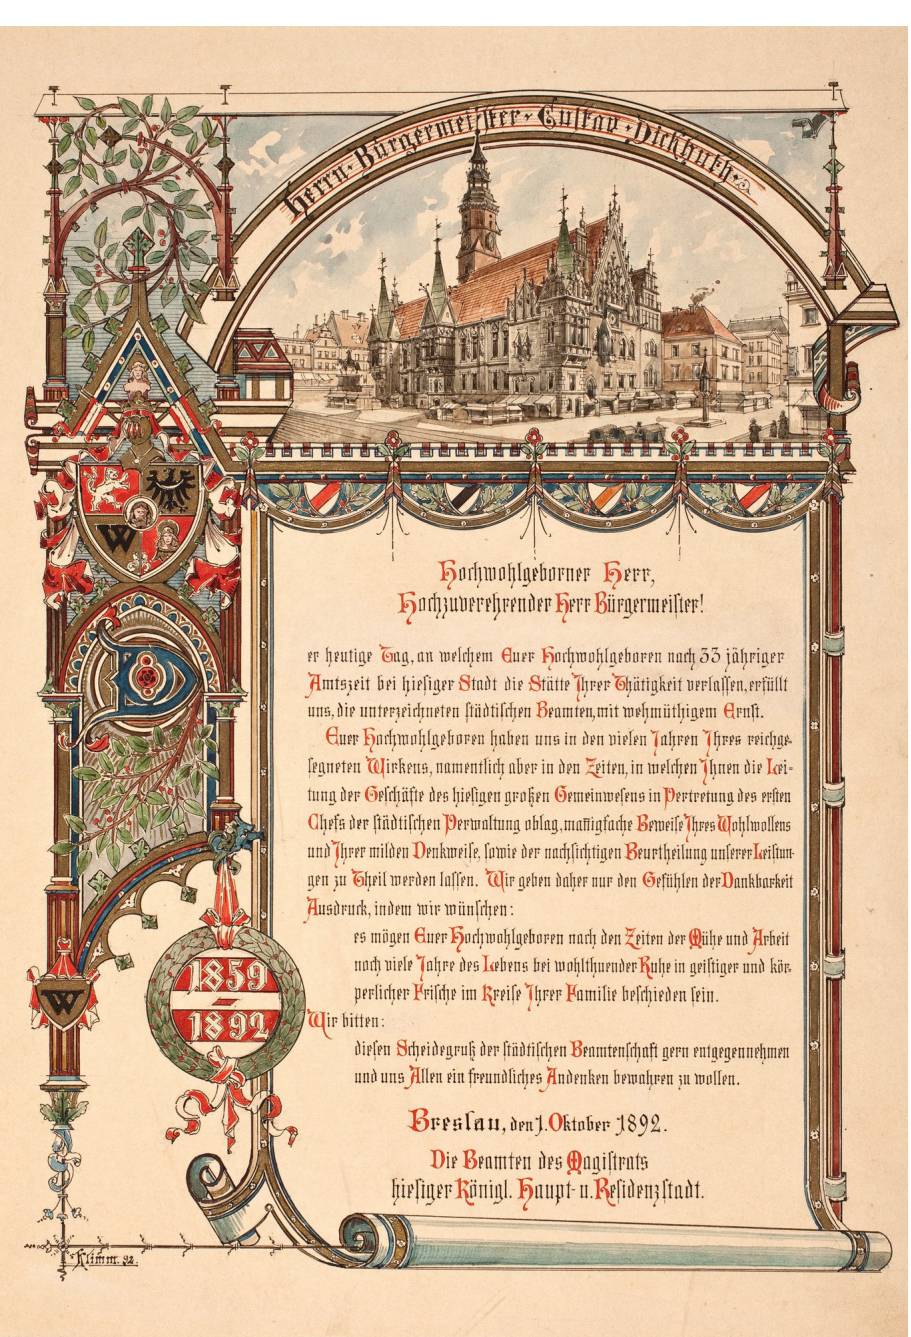 Herrn Bürgermeister Gustav Dickhuth
W
D
Hochwohlgeborner Herr,
Hochzuverehrender Herr Bürgermeister!
er heutige Tag, an welchem Euer Hochwohlgeboren nach 33 jähriger
Amtszeit bei hiesiger Stadt die Stätte Ihrer Thätigkeit verlassen, erfüllt
uns, die unterzeichneten städtischen Beamten, mit wehmüthigem Ernst.
Euer Hochwohlgeboren haben uns in den vielen Jahren Ihres reichge-
segneten Wirkens, namentlich aber in den Zeiten, in welchen Ihnen die Lei-
tung der Geschäfte des hiesigen großen Gemeinwesens in Vertretung des ersten
Chefs der städtischen Verwaltung oblag, mannigfache Beweise Ihres Wohlwollens
und Ihrer milden Denkweise, sowie der nachsichtigen Beurtheilung unserer Leistun-
gen zu Theil werden lassen. Wir geben daher nur den Gefühlen der Dankbarkeit
Ausdruck, indem wir wünschen:
es mögen Euer Hochwohlgeboren nach den Zeiten der Mühe und Arbeit
noch viele Jahre des Lebens bei wohlthuender Ruhe in geistiger und kör-
perlicher Frische im Kreise Ihrer Familie beschieden sein.
Wir bitten:
diesen Scheidegruß der städtischen Beamtenschaft gern entgegennehmen
und uns Allen ein freundliches Andenken bewahren zu wollen.
Breslau, den 1. Oktober 1892.
Die Beamten des Magistrats
hiesiger Königl. Haupt- u. Residenzstadt.
1859
1892
W
Klimm. 92.